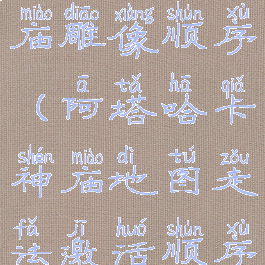 miào diāo xiàng shùn xù
庙雕像顺序
ā tǎ hā qiǎ
（阿塔哈卡
shén miào dì tú zǒu
神庙地图走
fǎ jī huó shùn xù
法激活顺序